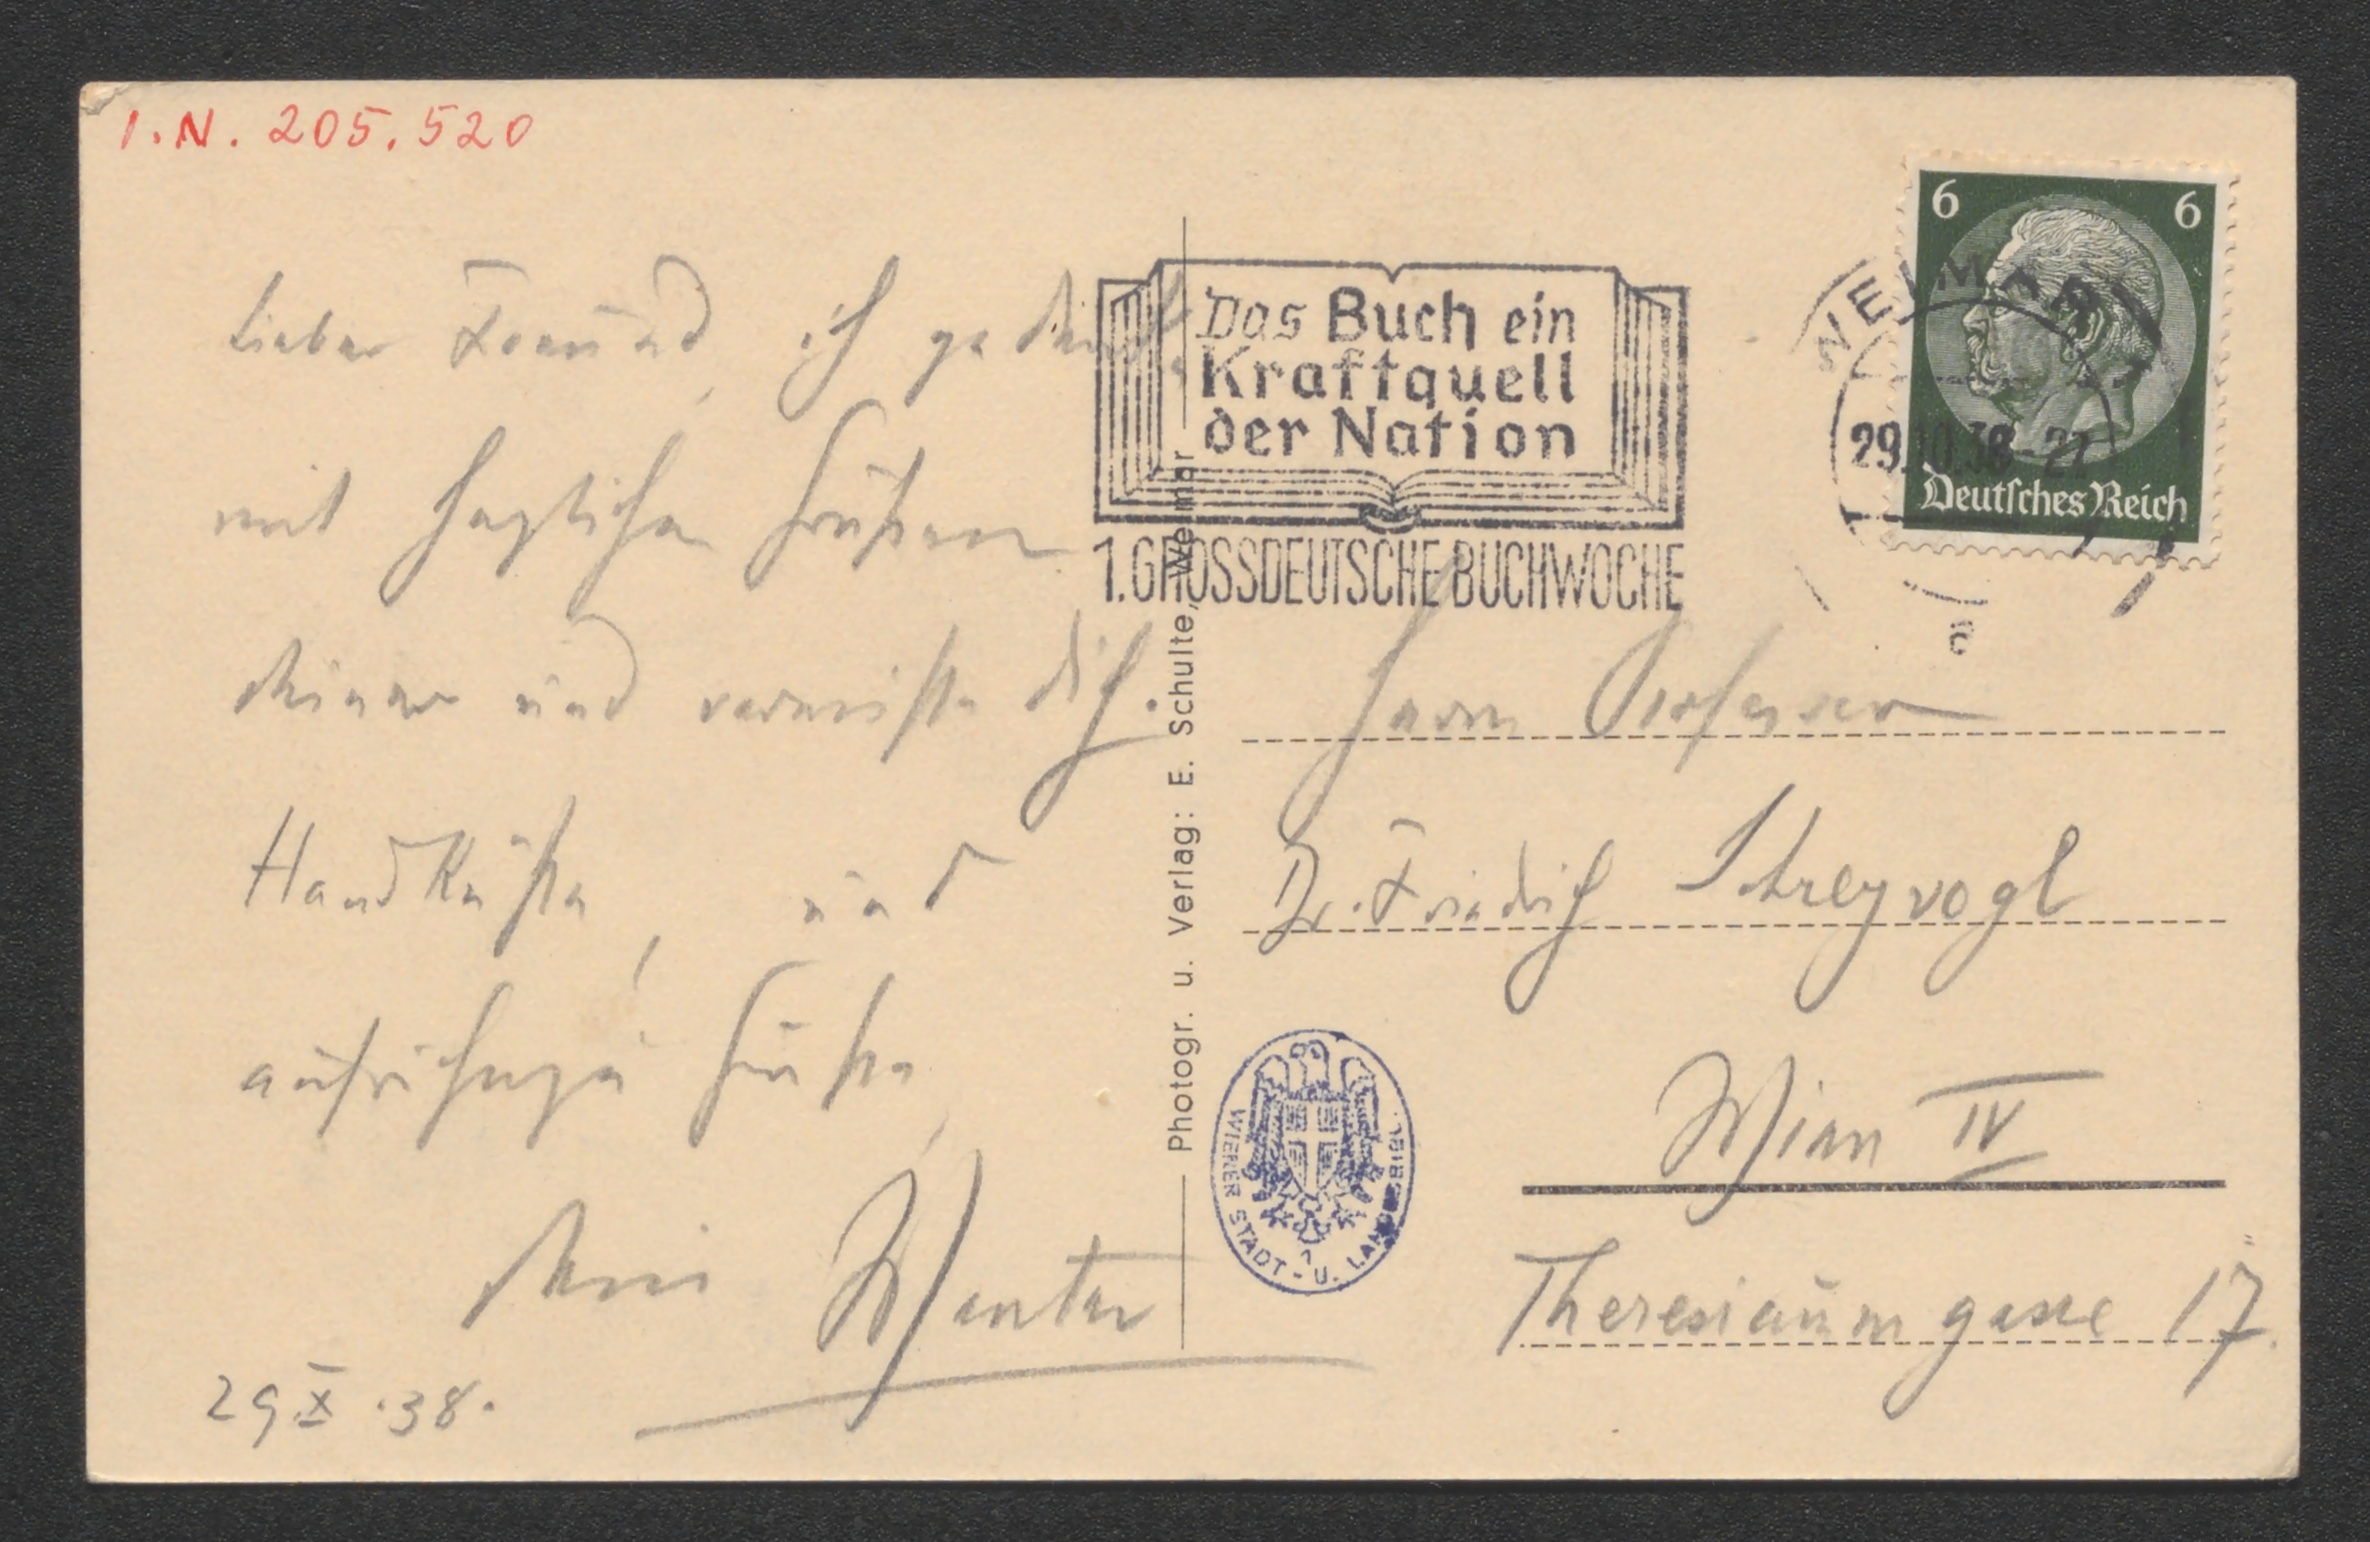 I.N. 205.520
Lieber Freund, ich gedenke
mit herzlichen Grüßen
deiner und vermisse dich.
Handküsse, und
aufrichtige Grüße,
dein
29.X.38.
Das Buch ein
Kraftquell
der Nation
1. GROSSDEUTSCHE BUCHWOCHE
6 6
Deutsches Reich
WEIMAR
29.10.38-21
a
Photogr. u. Verlag: E. Schulte, Weimar
Herrn Professor
Dr. Friedrich Schreyvogl
Wien IV
Theresianumgasse 17.
WIENER STADT- U. LANDESBIBL.